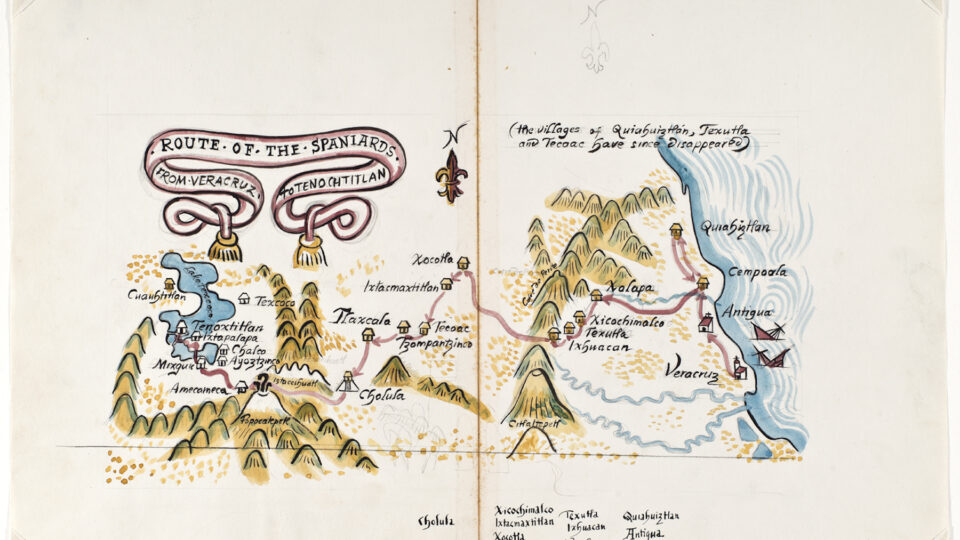 N
(the villages of Quiahuiztlán, Texutla
and Tecoac have since disappeared)
ROUTE · OF · THE · SPANIARDS ·
FROM · VERACRUZ ·
to TENOCHTITLAN
N
Quiahiztlan
Xocotla
Cempoala
Ixtacmaxtitlan
Xalapa
Cuauhtitlan
Texcoco
Antigua
Tlaxcala
Xicochimalco
Tenoxtitlan
Tecoac
Texutla
Ixtapalapa
Tzompantzinco
Ixhuacan
Chalco
Mixquic
Ayotzinco
Veracruz
Amecameca
Istaccihuatl
Cholula
Popocatepetl
Citlaltepetl
Cholula
Xicochimalco
Texutla
Quiahuiztlan
Ixtacmaxtitlan
Ixhuacan
Antigua
Xocotla